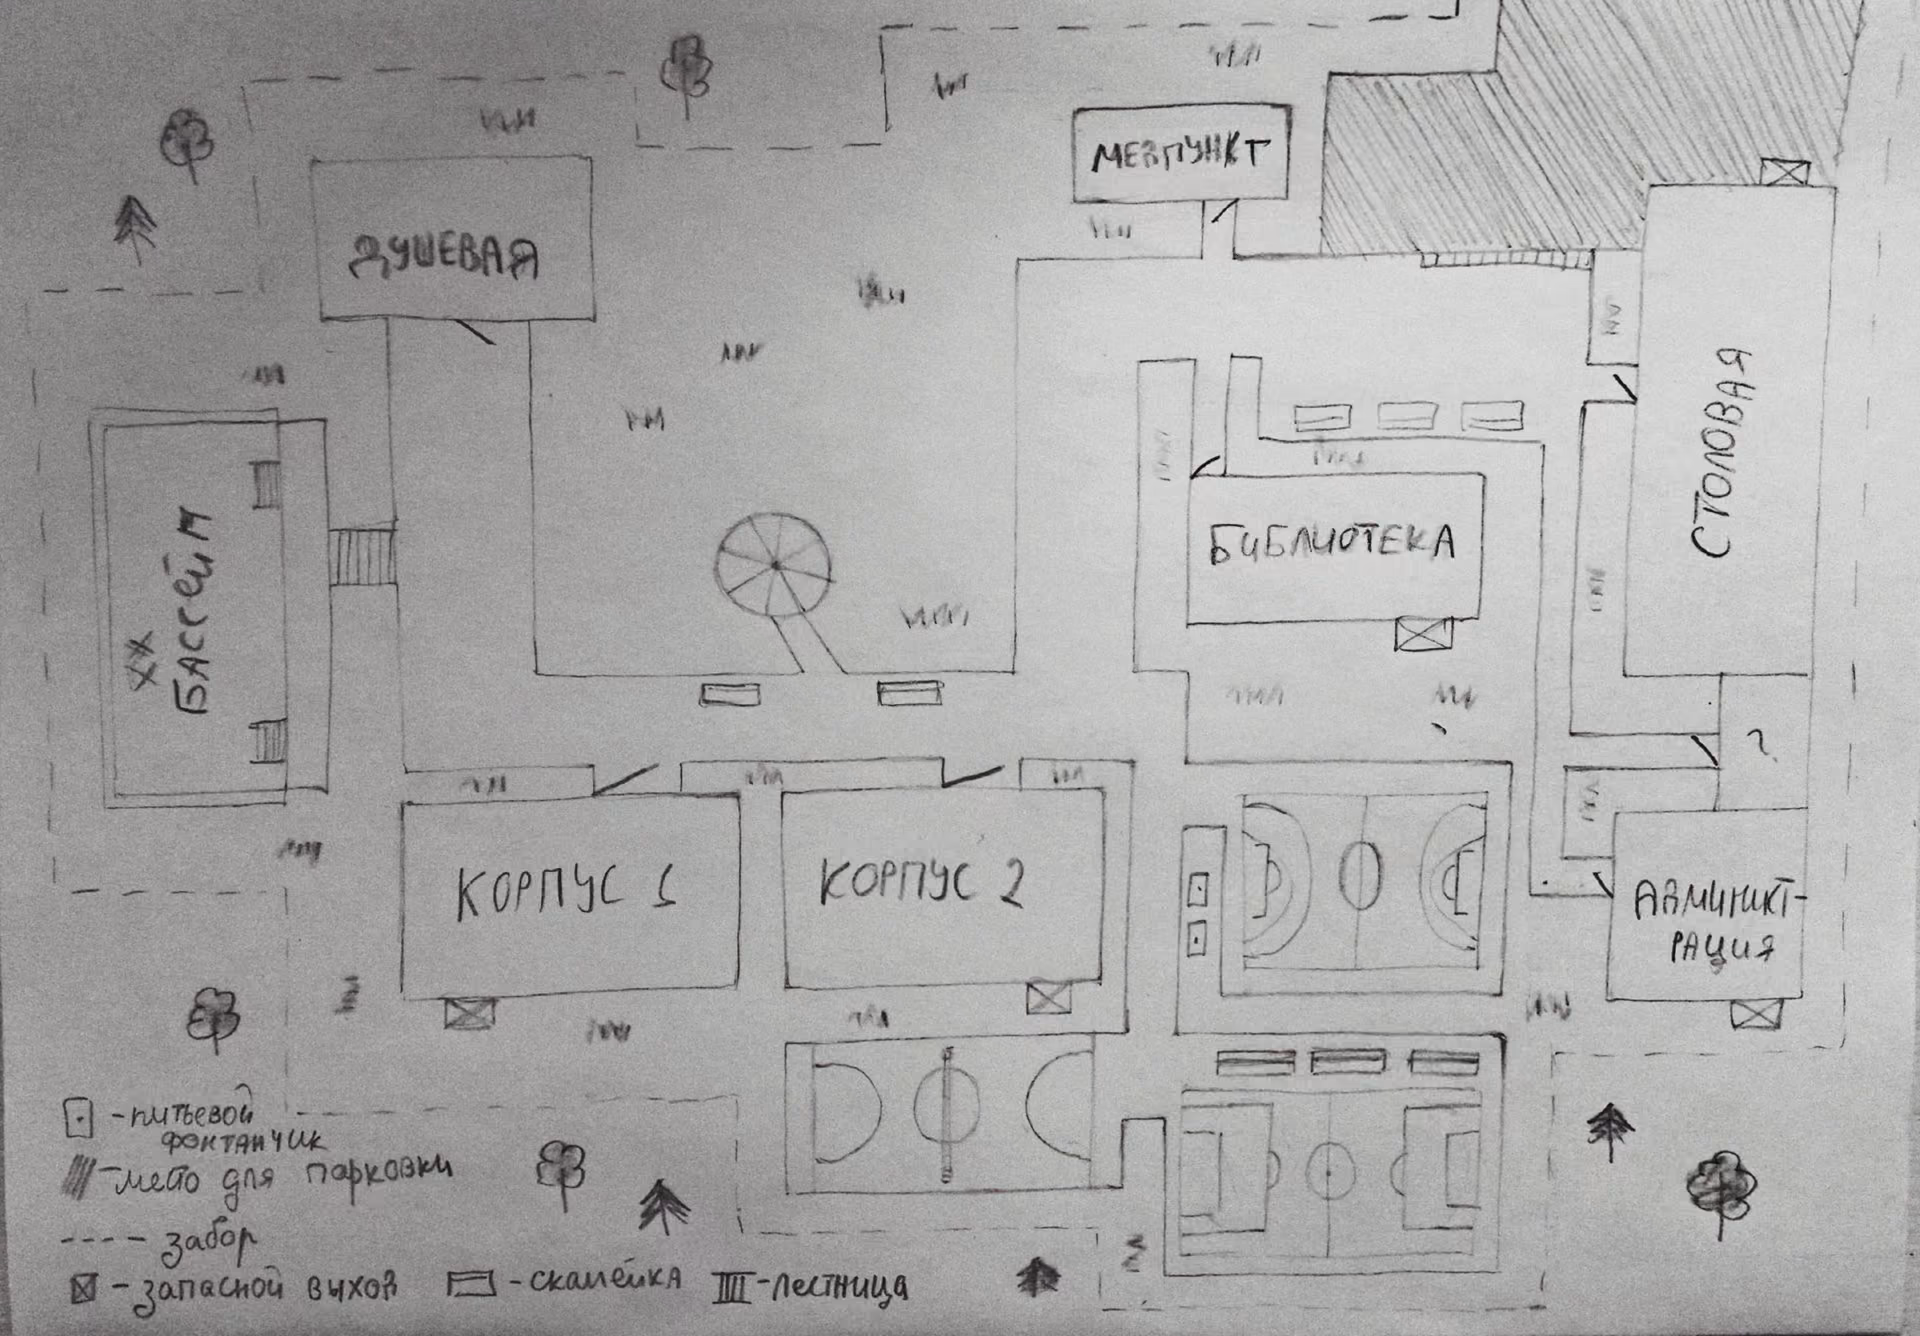 МЕДПУНКТ
ДУШЕВАЯ
СТОЛОВАЯ
БИБЛИОТЕКА
БАССЕЙН
?
КОРПУС 1
КОРПУС 2
АДМИНИСТ-
РАЦИЯ
-питьевой
фонтанчик
-место для парковки
забор
-запасной выход
-скамейка
-лестница